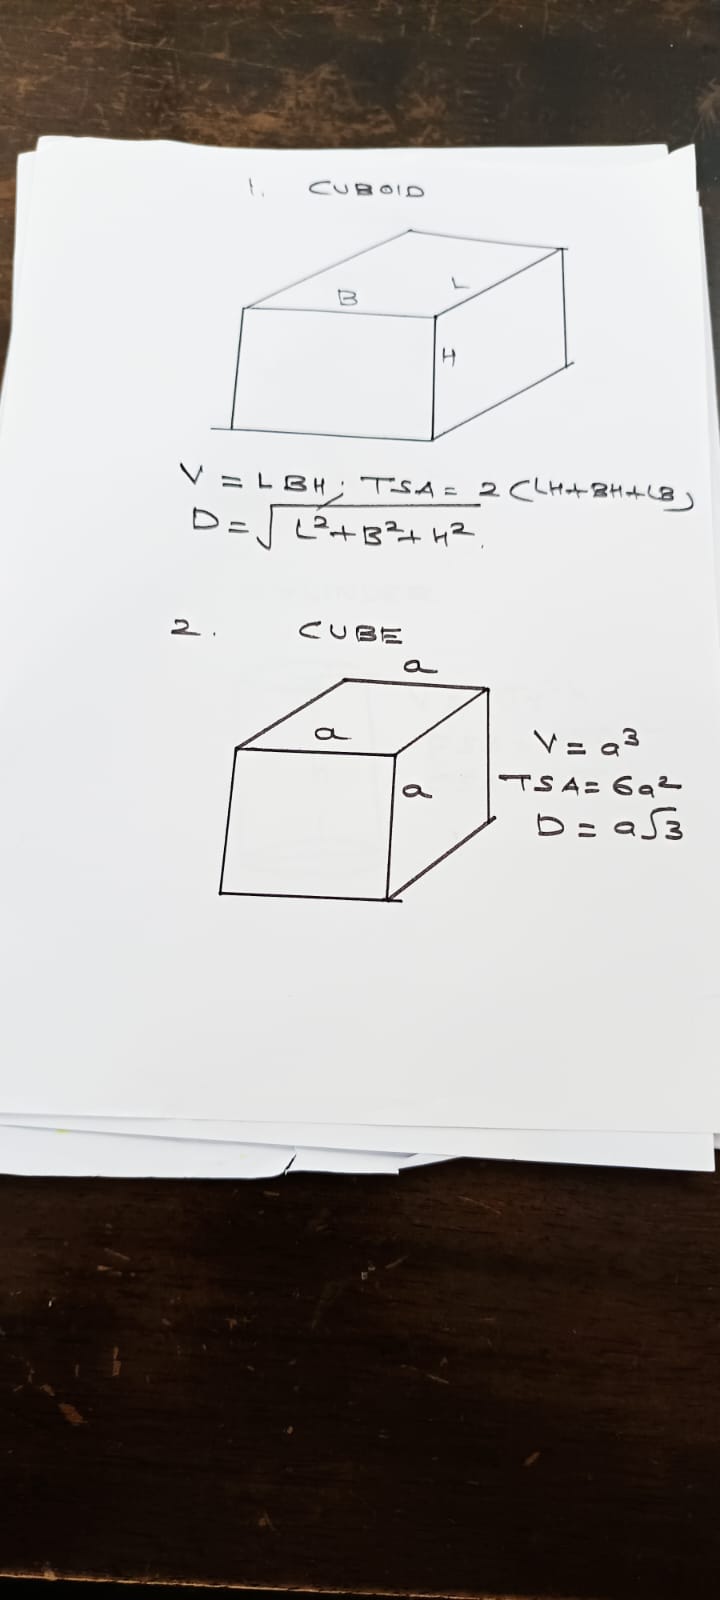 1. CUBOID
B L
H
V = LBH; TSA = 2(LH+BH+LB)
D = √L²+B²+H².
2. CUBE
a
a
a
V = a³
TSA = 6a²
D = a√3